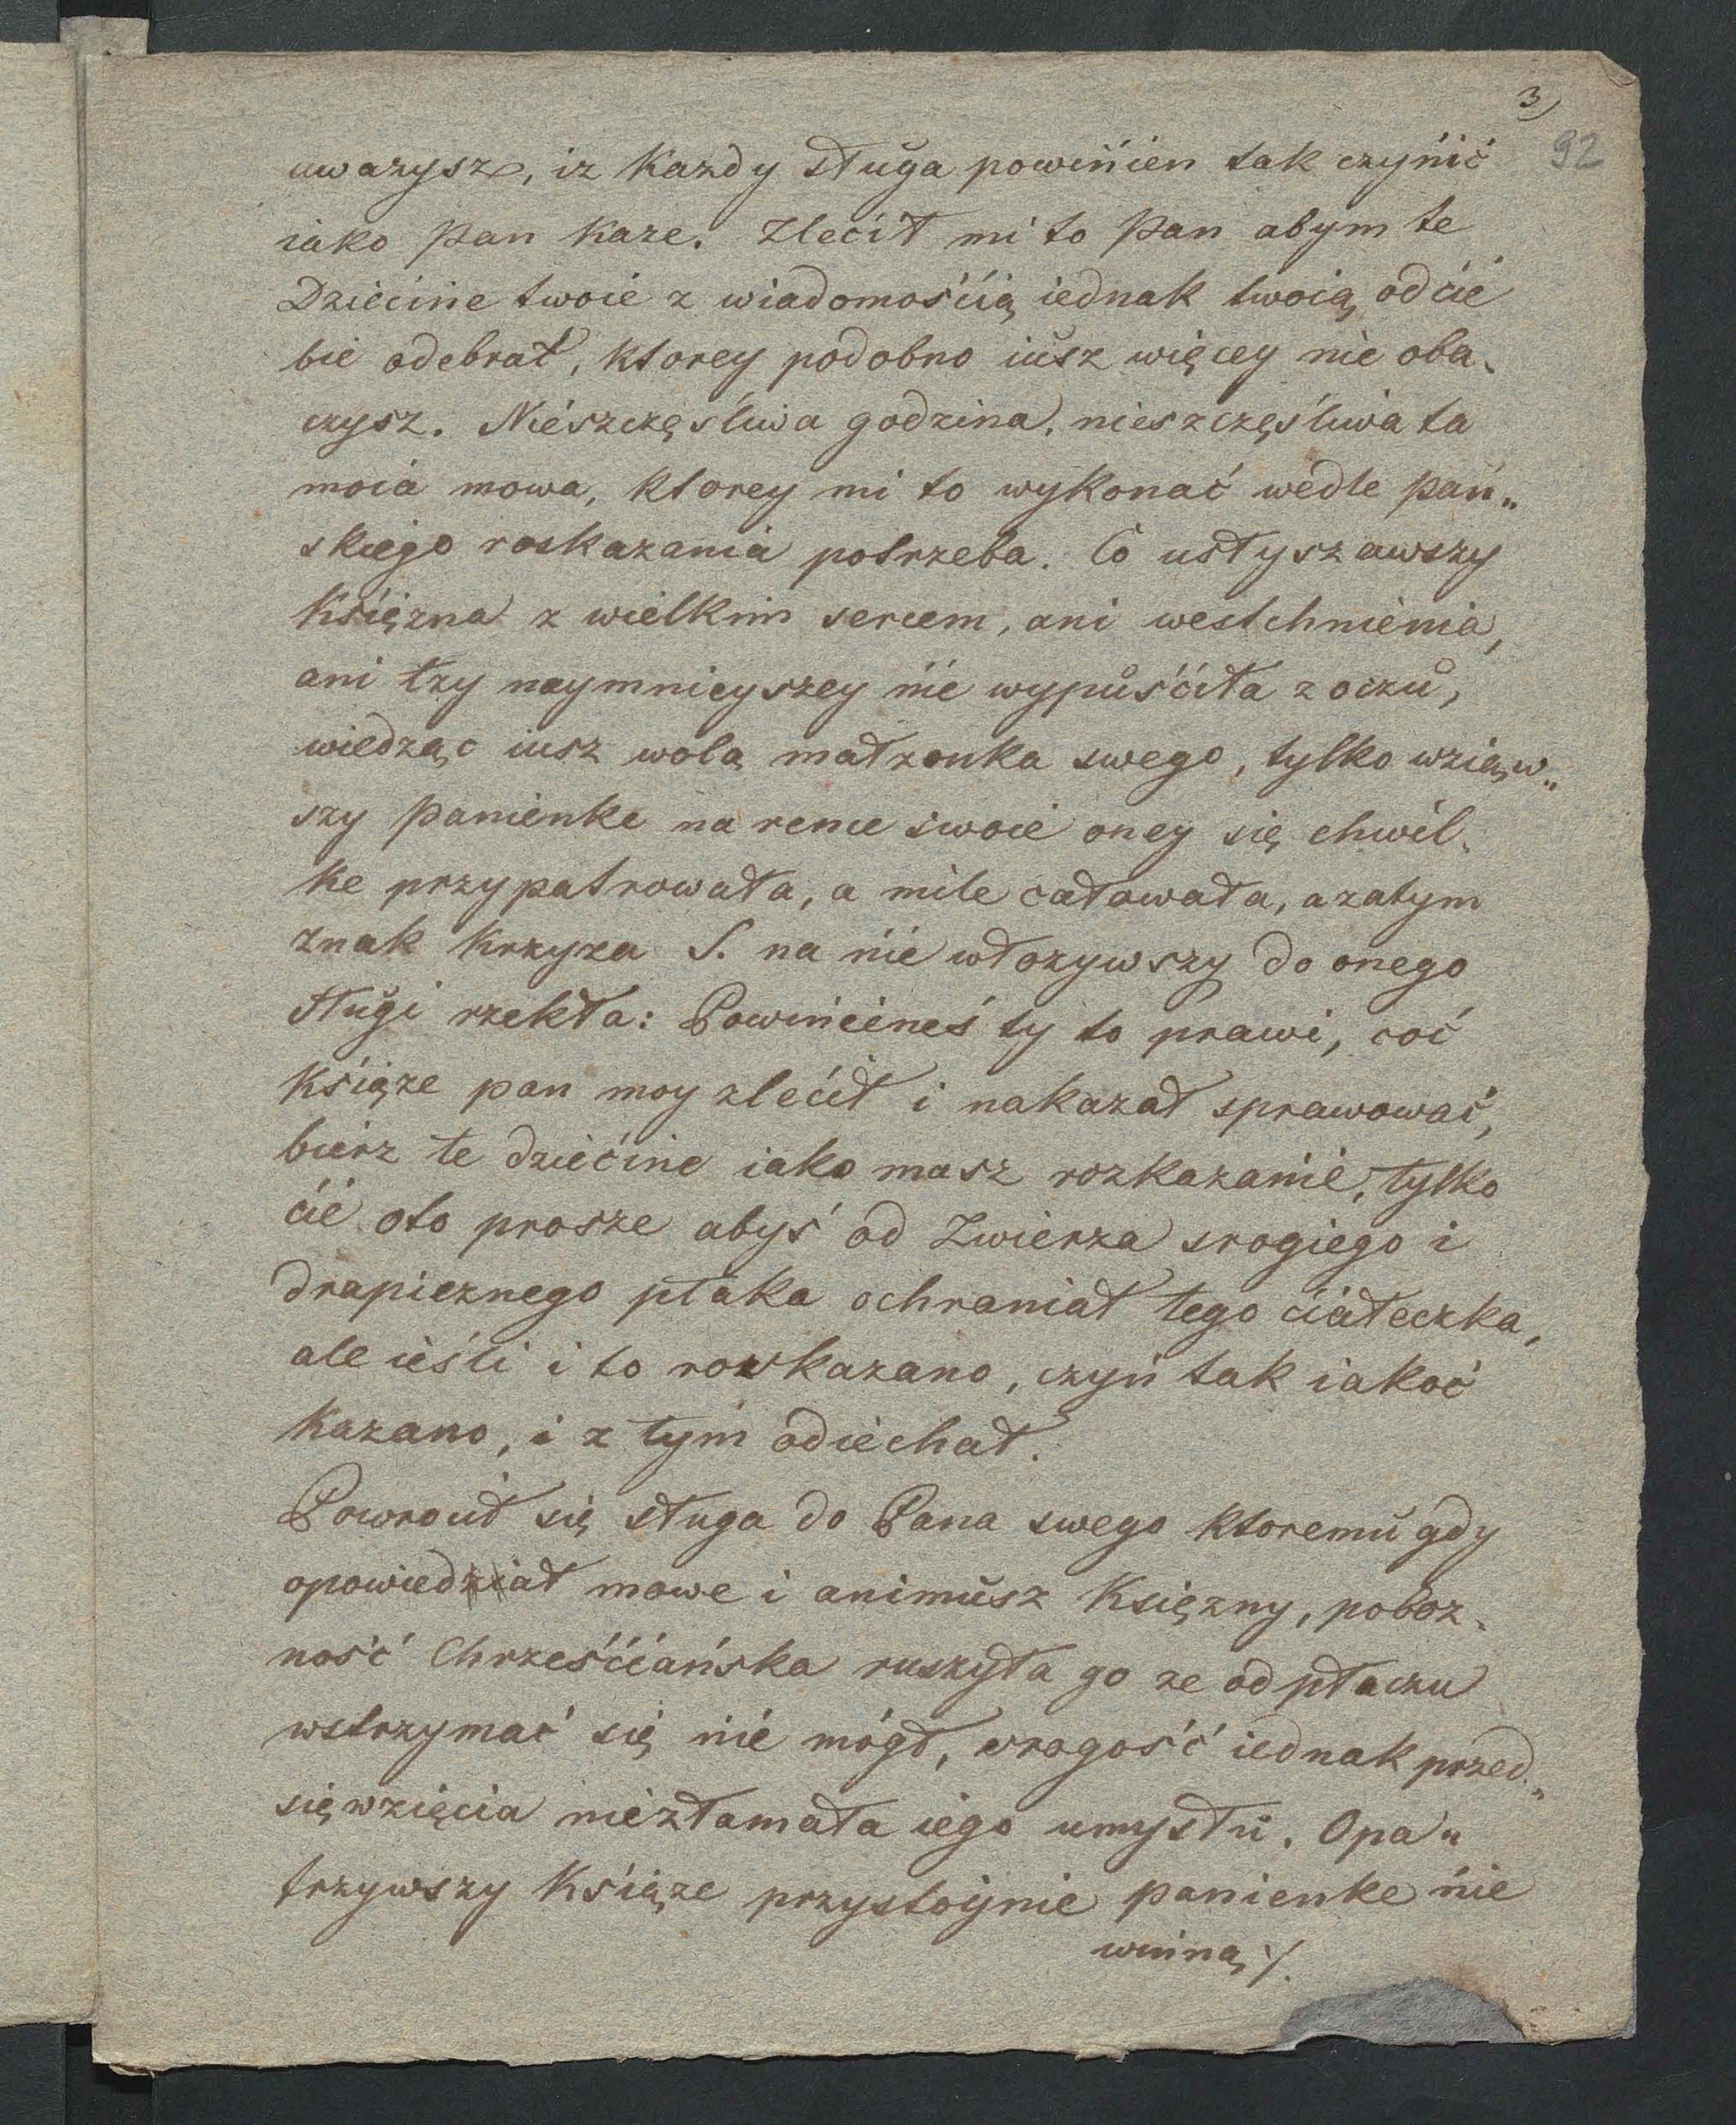 3)
92
uwazysz, iz Kazdy sługa powinien tak czynić
iako Pan Kaze. Zlecił mi to Pan abym te
Dziecine twoie z wiadomością iednak twoią od cie
bie odebrał, Ktorey podobno iusz więcey nie oba„
czysz. Nieszczęśliwa godzina, nieszczęśliwa ta
moia mowa, Ktorey mi to wykonać wedle Pań„
skiego roskazania potrzeba. Co usłyszawszy
Księzna z wielkim sercem, ani westchnienia,
ani łzy naymnieyszey nie wypuściła z oczu,
wiedząc iusz wolą małzonka swego, tylko wziąw„
szy Panienke na rence swoie oney się chwil„
ke przypatrowała, a mile całowała, a zatym
Znak Krzyza S. na nie włozywszy do onego
sługi rzekła: Powinieneś ty to prawi, coć
Ksiąze pan moy zlecił i nakazał sprawować,
bierz te dziecine iako masz rozkazanie, tylko
cie oto prosze abyś od Zwierza srogiego i
drapieznego ptaka ochraniał tego ciałeczka,
ale ieśli i to rozkazano, czyń tak iakoć
Kazano, i z tym odiechał.
Powrocił się sługa do Pana swego Ktoremu gdy
opowiedział mowe i animusz Księzny, poboz„
ność Chrześćiańska ruszyła go ze od płaczu
wstrzymać się nie mógł, srogość iednak przed„
sięwzięcia niezłamała iego umysłu. Opa„
trzywszy Ksiąze przystoynie panienke nie
winną ./.